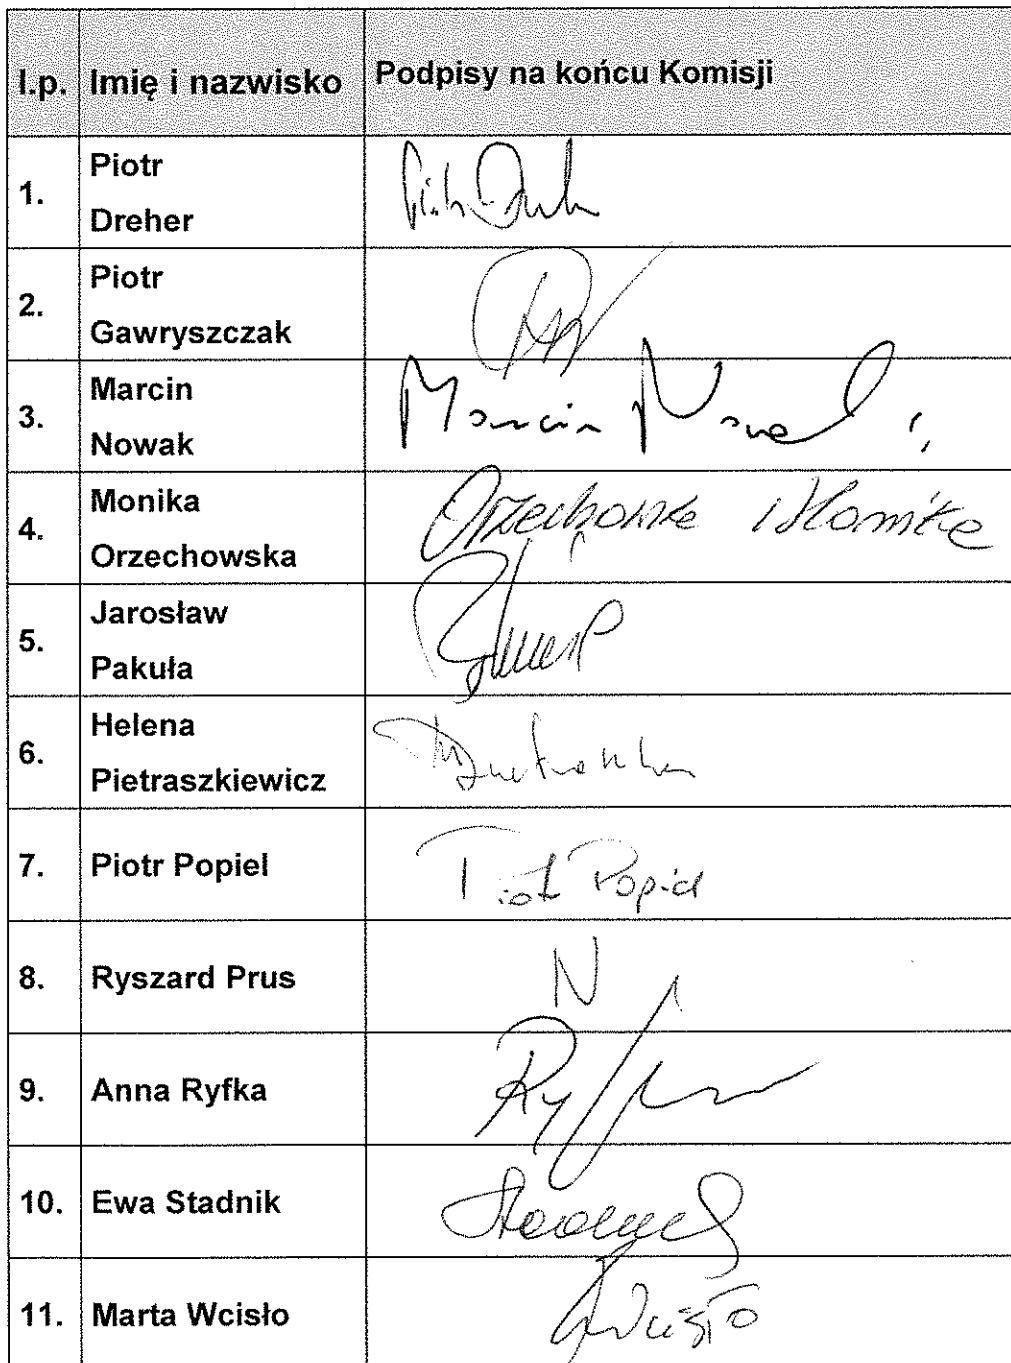 l.p. Imię i nazwisko Podpisy na końcu Komisji
1. Piotr
Dreher
2. Piotr
Gawryszczak
3. Marcin
Nowak
Marcin Nowak
4. Monika
Orzechowska
Orzechowska Monika
5. Jarosław
Pakuła
6. Helena
Pietraszkiewicz
7. Piotr Popiel Piotr Popiel
8. Ryszard Prus N
9. Anna Ryfka
10. Ewa Stadnik
11. Marta Wcisło Wcisło